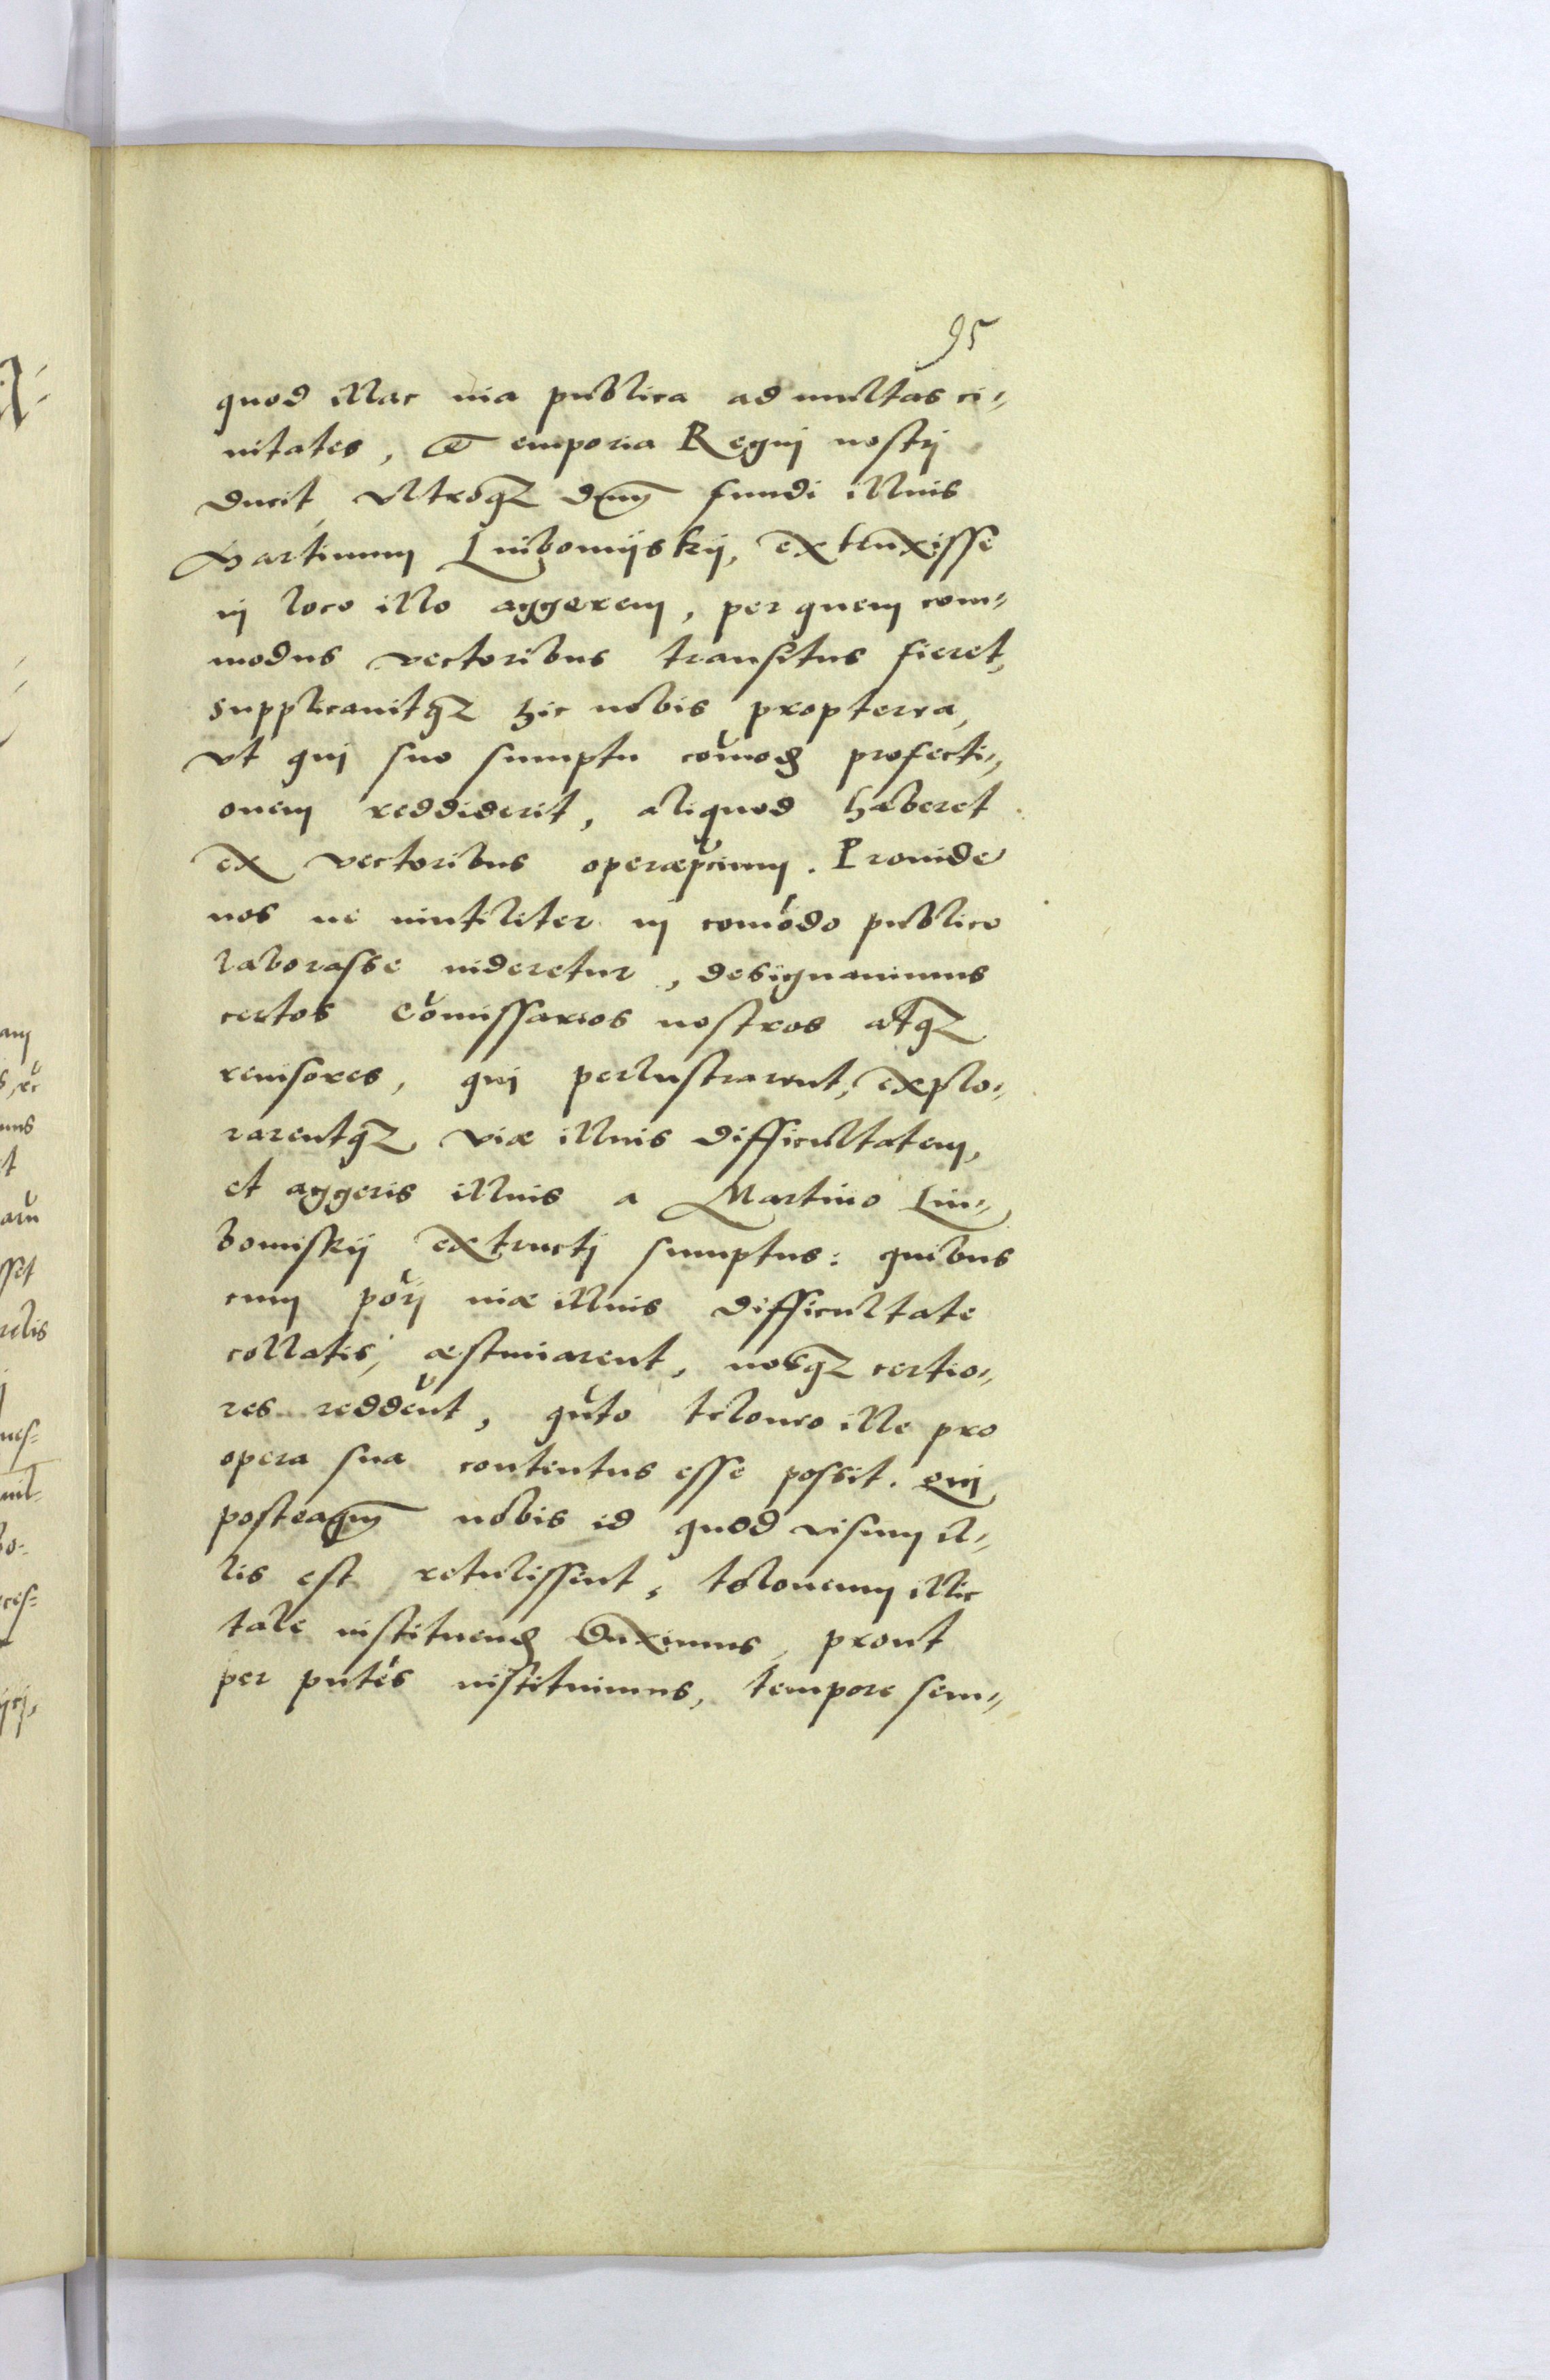 95
quod illac uia publica ad multas ci„
uitates, et emporia Regnj nostrj
ducit, Vltroq₃ dnm̅ fundi illius
Martinum Luibomijskij, extruxisse
in loco illo aggerem, per quem com„
modus vectoribus transitus fieret,
supplicauitq₃ hic nobis propterea,
vt quj suo sumptu com̃od profecti„
onem reddiderit, aliquod haberet
ex vectoribus operæp̃cium. Prouide
nos ne inutiliter in com̃odo publico
laborasse uideretur, designauimus
certos Com̃issarios nostros atq₃
reuisores, quj perlustrarent, explo„
rarentq₃ viæ illius difficultatem,
et aggeris illius a Martino Lui„
bomiskij extructj sumptus: quibus
cum p̃orj uiæ illius difficultate
collatis, æstimarent, nosq₃ certio„
res redde̅nt, qu̅to teloneo ille pro
opera sua contentus esse possit. Quj
posteaqm̅ nobis id quod visum il„
lis est retulissent, teloneum illic
tale instituend duximus, prout
per pñtes instituimus, tempore sem„